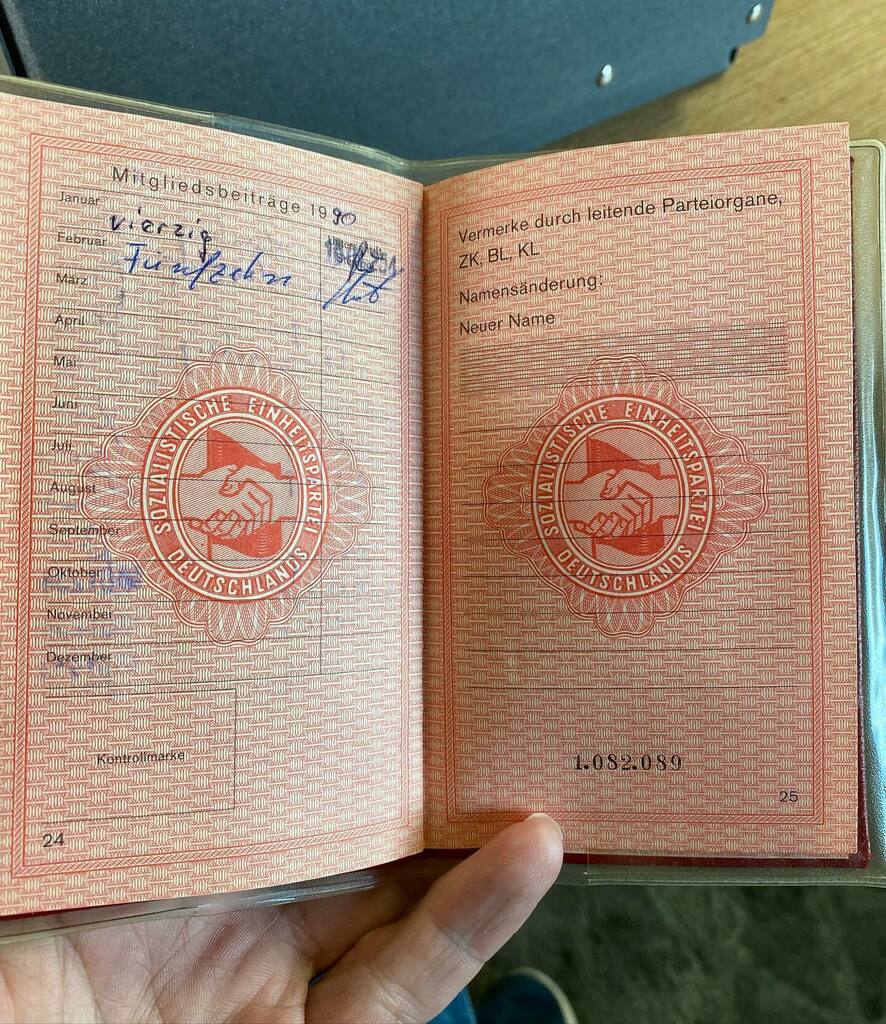 Mitgliedsbeiträge 1990
Januar vierzig
Februar Fünfzehn
März
April
Mai
Juni
Juli
August
September
Oktober
November
Dezember
SOZIALISTISCHE EINHEITSPARTEI DEUTSCHLANDS
Kontrollmarke
24
Vermerke durch leitende Parteiorgane,
ZK, BL, KL
Namensänderung:
Neuer Name
SOZIALISTISCHE EINHEITSPARTEI DEUTSCHLANDS
1.082.089
25